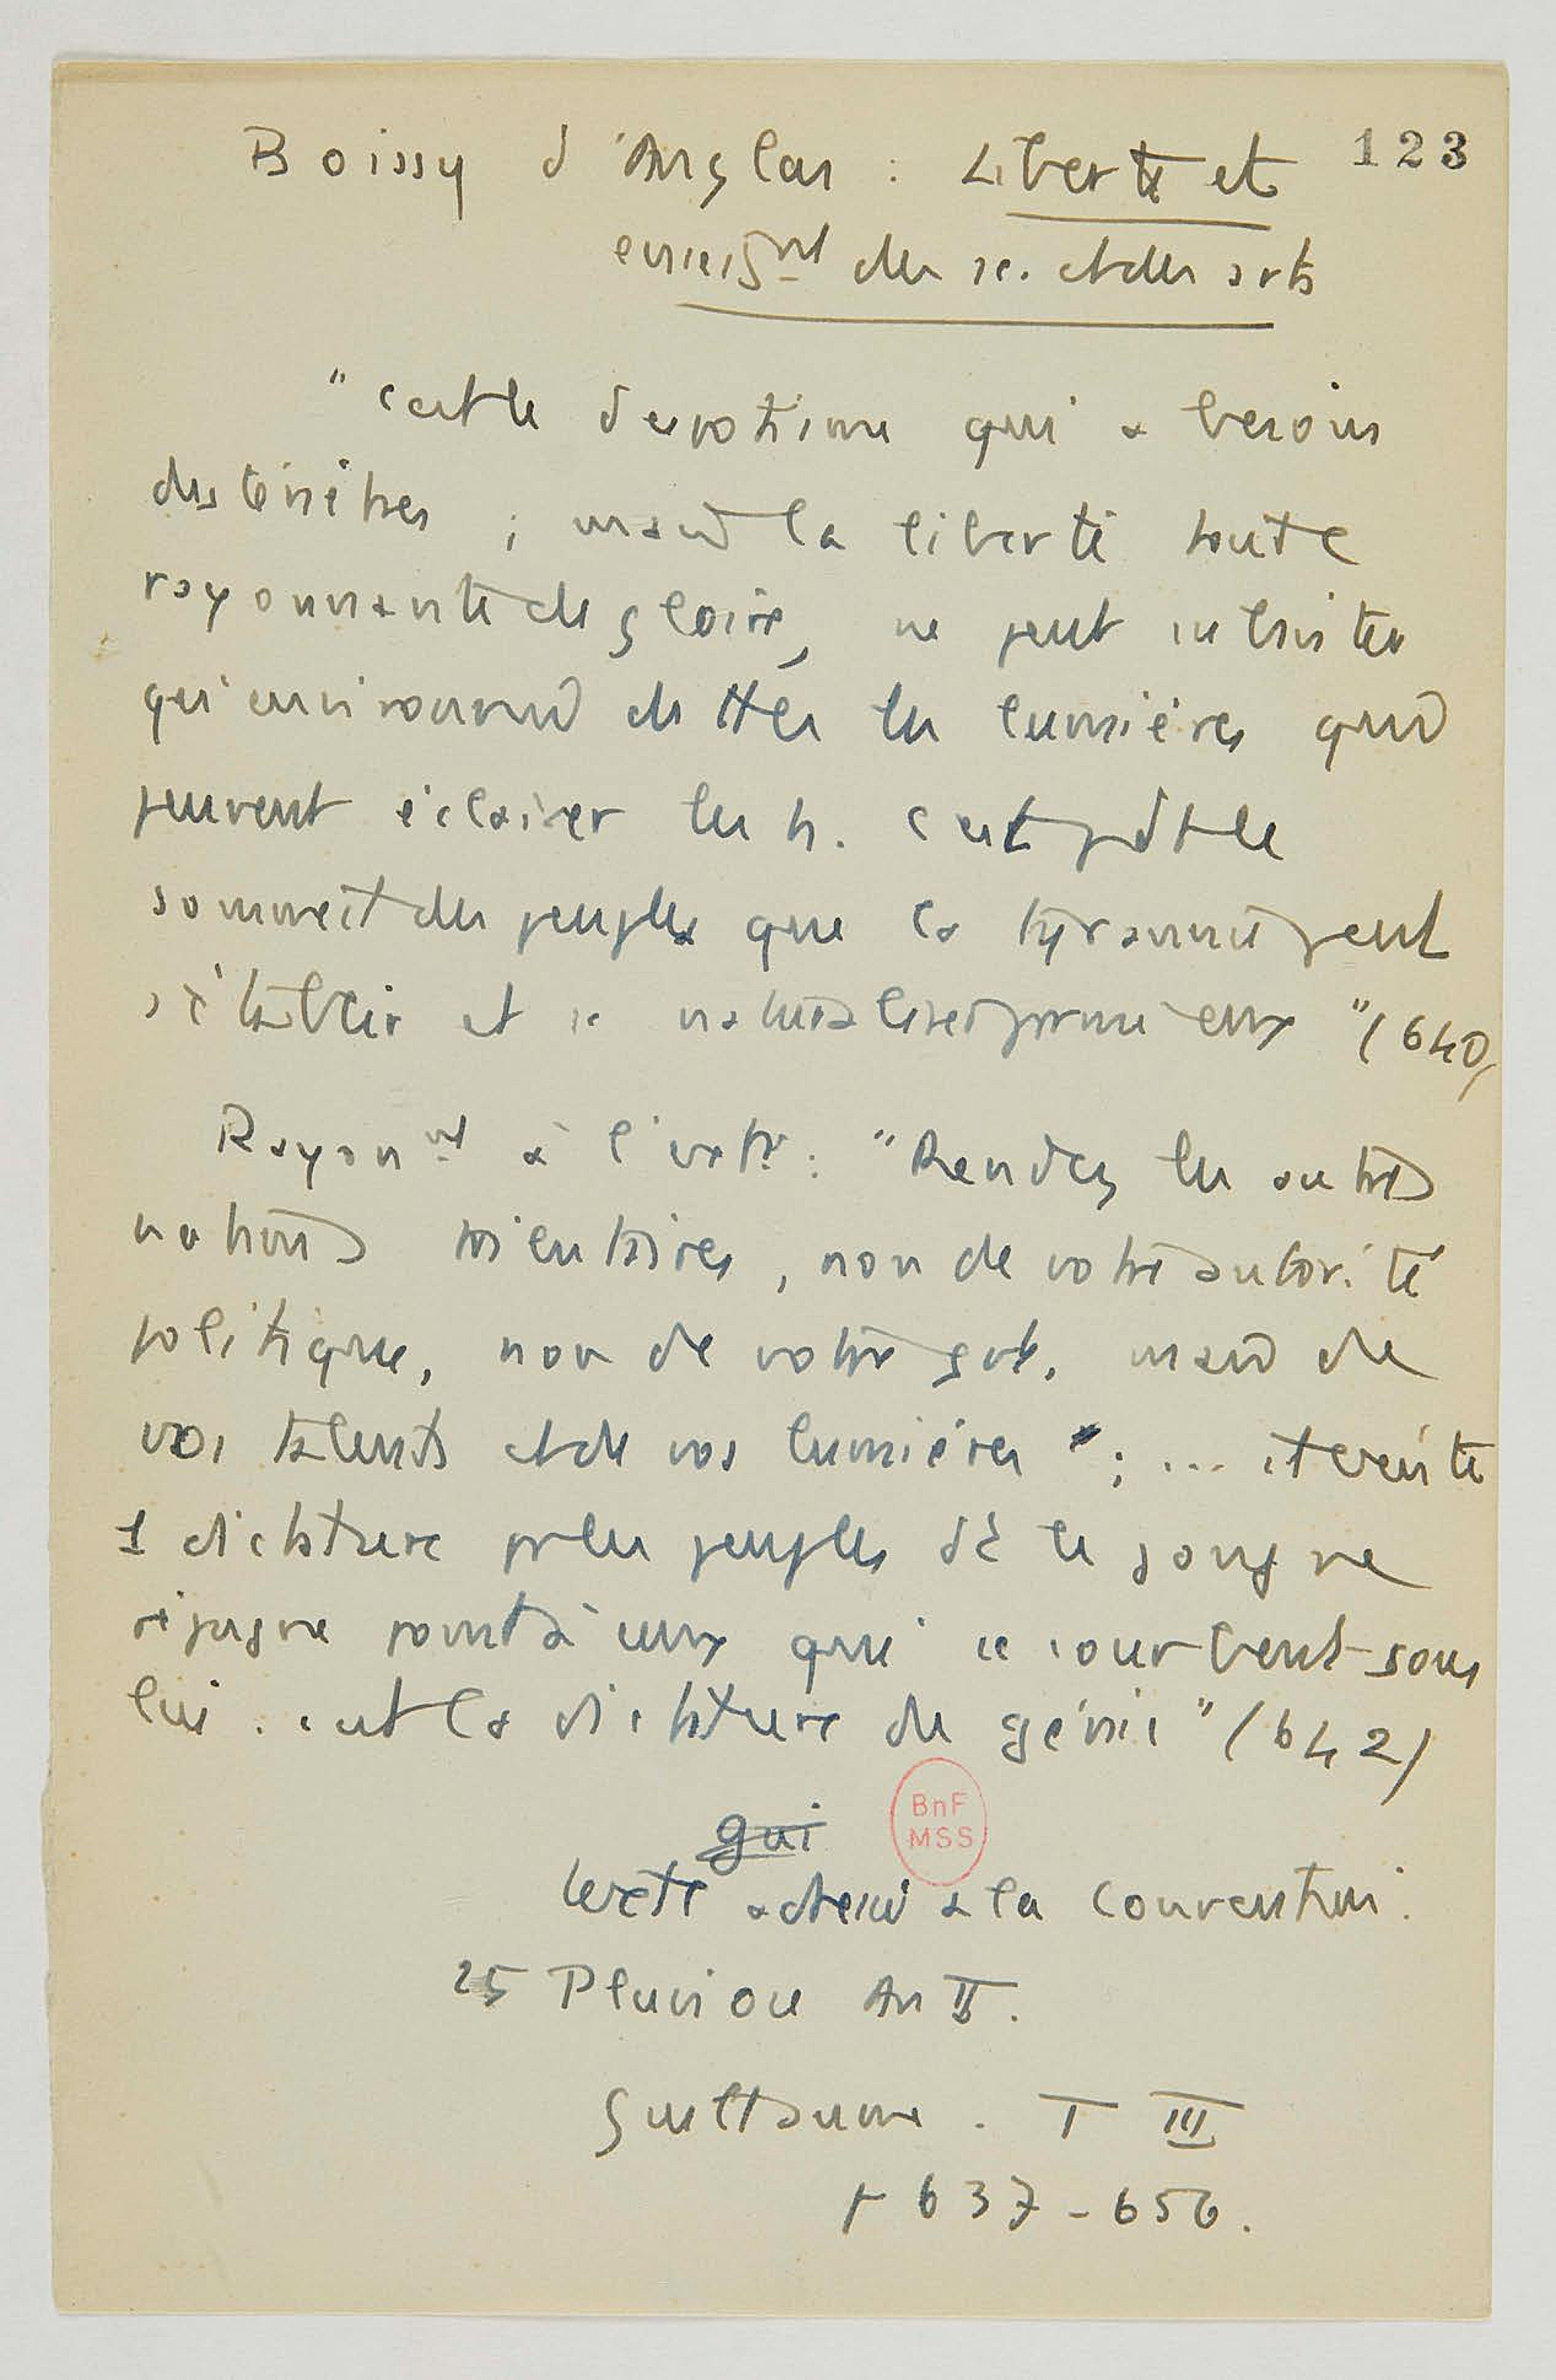 Boissy d'Anglas : Liberté et 123
enseignt des sc. et des arts
"C'est le despotisme qui a besoin
des ténèbres ; mais la liberté toute
rayonnante de gloire, ne peut subsister
qu'environnée de ttes les lumières qui
peuvent éclairer les h. C'est pdt le
sommeil des peuples que la tyrannie peut
s'établir et se naturaliser parmi eux" (640)
Rayonnt à l'extr : "Rendez les autres
nations tributaires, non de votre autorité
politique, non de votre gvt, mais de
vos talents et de vos lumières ; ... il existe
1 dictature pr les peuples dt le joug ne
répugne point à ceux qui se courbent sous
lui. C'est la dictature du génie" (642)
qui
texte adressé à la Convention.
25 Pluviose An II.
Guillaume. T III
p 637-656.
BnF
MSS